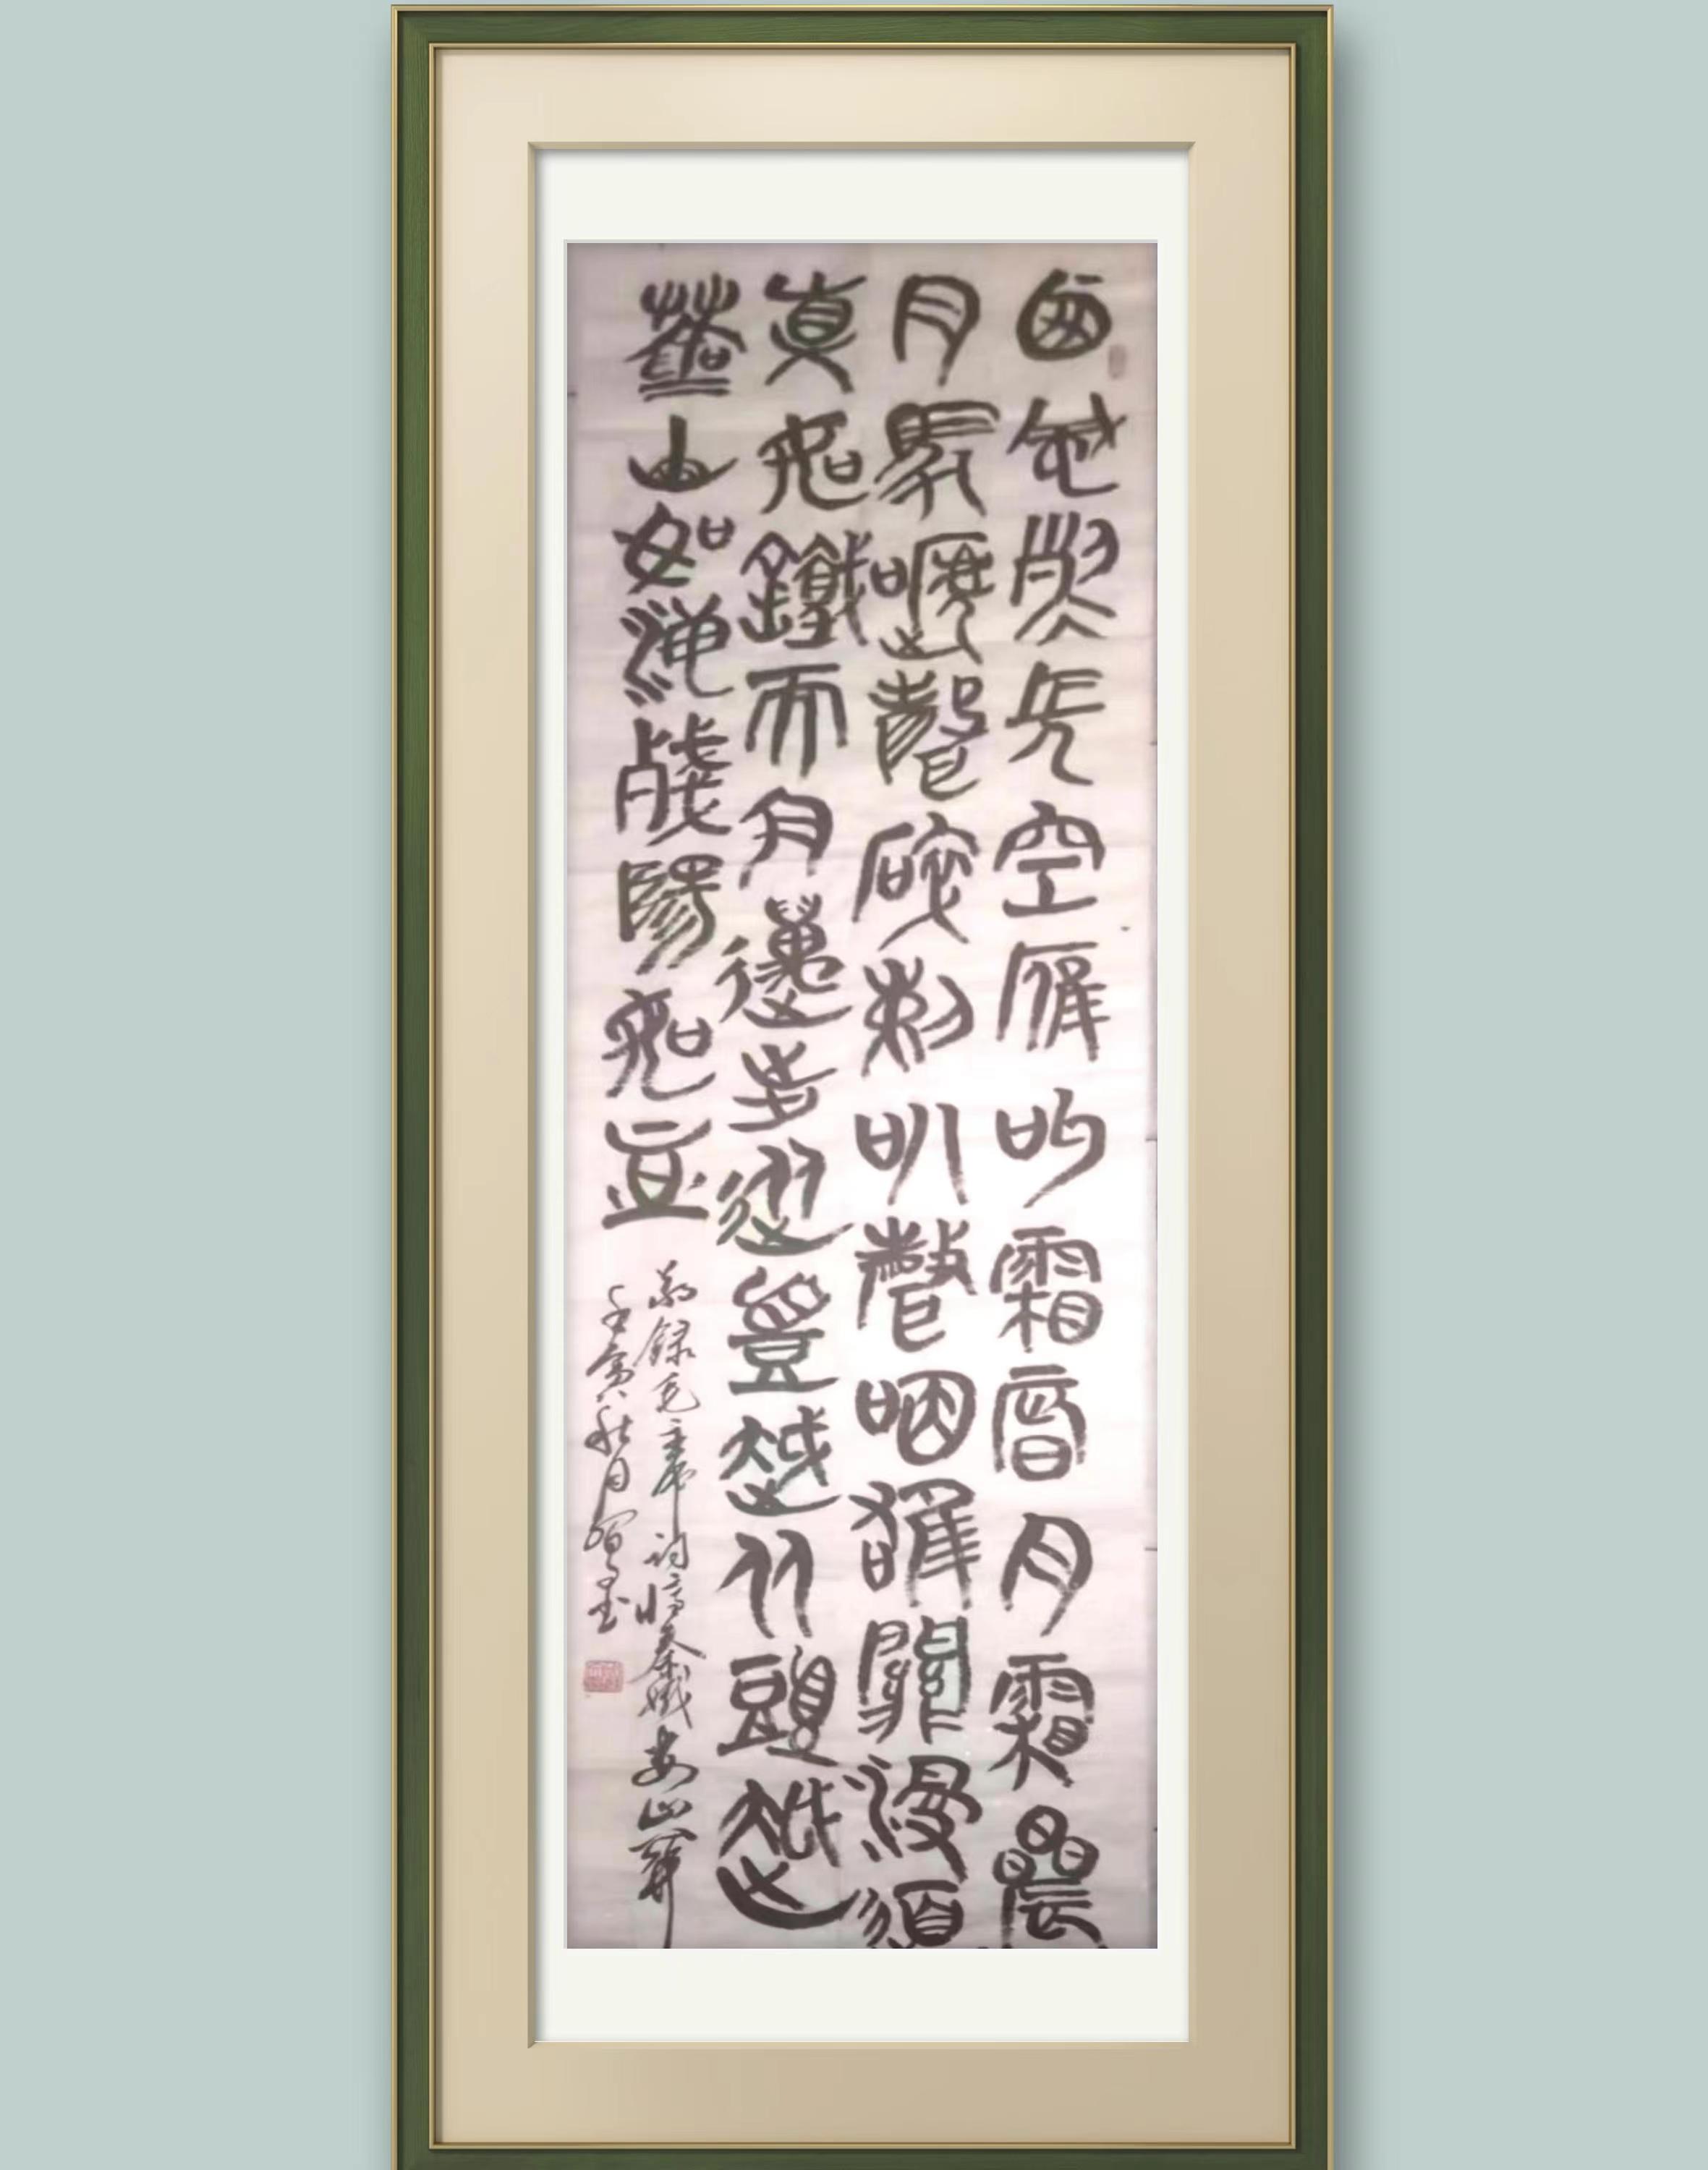 西風烈長空雁叫霜晨月霜晨
月馬蹄聲碎喇叭聲咽雄關漫道
真如鐵而今邁步從頭越从頭越
蒼山如海殘陽如血
敬録毛主席词憶秦娥娄山關
壬寅秋月